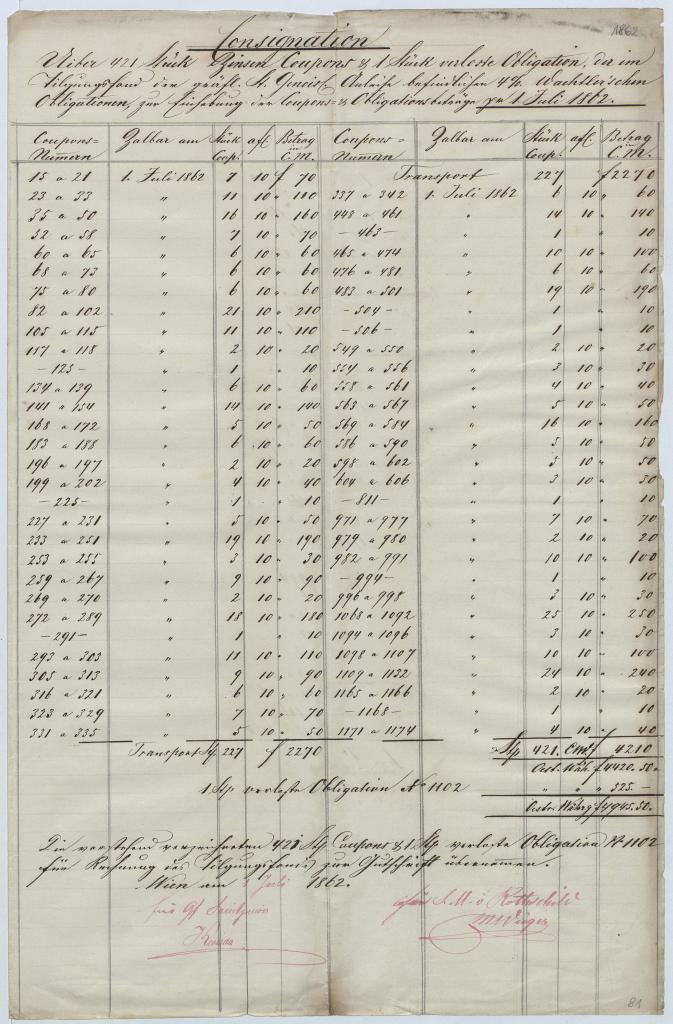 1862
Consignation
Ueber 421 Stück Zinsen Coupons & 1 Stück verloste Obligation, der im
Tilgungsfond der gräfl. St. Genois'schen Anleihe befindlichen 4% Wachtler'schen
Obligationen, zur Einhebung der Coupons- & Obligationsbeträge pr 1 Juli 1862.
Coupons= Numern | Zalbar am | Stück Coup. | a f. | Betrag in C.M. | Coupons= Numern | Zalbar am | Stück Coup. | a f. | Betrag in C.M.
15 a 21 1. Juli 1862 7 10 f 70 Transport 227 f 2270
23 a 33 " 11 10 " 110 337 a 342 1. Juli 1862 6 10 " 60
35 a 50 " 16 10 " 160 448 a 461 " 14 10 " 140
52 a 58 " 7 10 " 70 – 463 – " 1 " 10
60 a 65 " 6 10 " 60 465 a 474 " 10 10 " 100
68 a 73 " 6 10 " 60 476 a 481 " 6 10 " 60
75 a 80 " 6 10 " 60 483 a 501 " 19 10 " 190
82 a 102 " 21 10 " 210 – 504 – " 1 " 10
105 a 115 " 11 10 " 110 – 506 – " 1 " 10
117 a 118 " 2 10 " 20 549 a 550 " 2 10 " 20
– 125 – " 1 " 10 554 a 556 " 3 10 " 30
134 a 139 " 6 10 " 60 558 a 561 " 4 10 " 40
141 a 154 " 14 10 " 140 563 a 567 " 5 10 " 50
168 a 172 " 5 10 " 50 569 a 584 " 16 10 " 160
183 a 188 " 6 10 " 60 586 a 590 " 5 10 " 50
196 a 197 " 2 10 " 20 598 a 602 " 5 10 " 50
199 a 202 " 4 10 " 40 604 a 606 " 3 10 " 30
– 225 – " 1 " 10 – 811 – " 1 " 10
227 a 231 " 5 10 " 50 971 a 977 " 7 10 " 70
233 a 251 " 19 10 " 190 979 a 980 " 2 10 " 20
253 a 255 " 3 10 " 30 982 a 991 " 10 10 " 100
259 a 267 " 9 10 " 90 – 994 – " 1 " 10
269 a 270 " 2 10 " 20 996 a 998 " 3 10 " 30
272 a 289 " 18 10 " 180 1068 a 1092 " 25 10 " 250
– 291 – " 1 " 10 1094 a 1096 " 3 10 " 30
293 a 303 " 11 10 " 110 1098 a 1107 " 10 10 " 100
305 a 313 " 9 10 " 90 1109 a 1132 " 24 10 " 240
316 a 321 " 6 10 " 60 1165 a 1166 " 2 10 " 20
323 a 329 " 7 10 " 70 – 1168 – " 1 " 10
331 a 335 " 5 10 " 50 1171 a 1174 " 4 10 " 40
Transport Stp 227 f 2270 Stp 421. C.M. f 4210
Oest. Wäh. f 4420.50.
1 Stp verloste Obligation No 1102 " " " 525.–
Oestr. Währg f 4945.50.
Die vorstehend verzeichneten 421 Stp Coupons & 1 Stp verloste Obligation No 1102
für Rechnung des Tilgungsfondes zur Gutschrift übernomen.
Wien am Juli 1862.
für S. M. v. Rothschild
für Gf Saintgenois
81